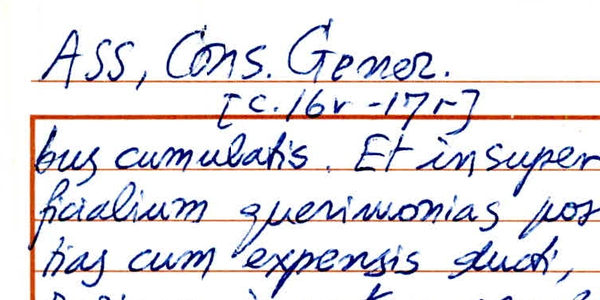 Ass, Cons. Gener.
[c. 16v - 17r]
bus cumulatis. Et insuper
ficialium querimonias pos
tias cum expensis ducti,